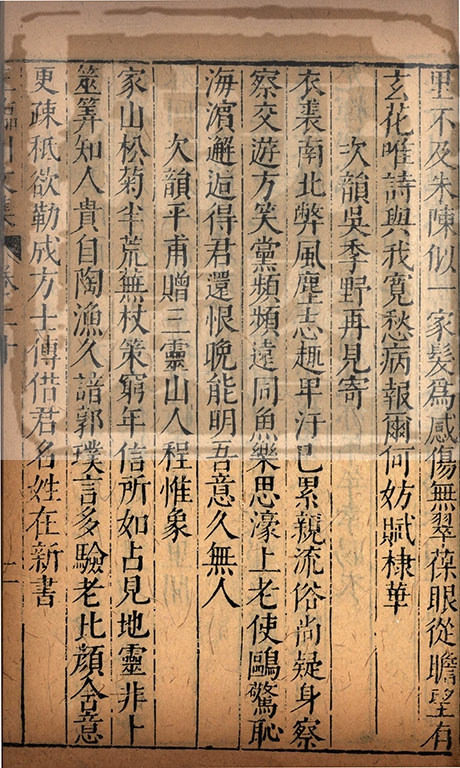 里不及朱陳似一家髮為感傷無翠葆眼從瞻望有
玄花唯詩與我寬愁病報爾何妨賦棣華
次韻吳季野再見寄
衣裘南北弊風塵志趣卑汙已累親流俗尚疑身察
察交遊方笑黨頻頻遠同魚樂思濠上老使鷗驚恥
海濵邂逅得君還恨晚能明吾意久無人
次韻平甫贈三靈山人程惟象
家山松菊半荒蕪杖策窮年信所如占見地靈非卜
筮筭知人貴自陶漁久諳郭璞言多驗老比顏含意
更疎秖欲勒成方士傳借君名姓在新書
王臨川文集 卷二十